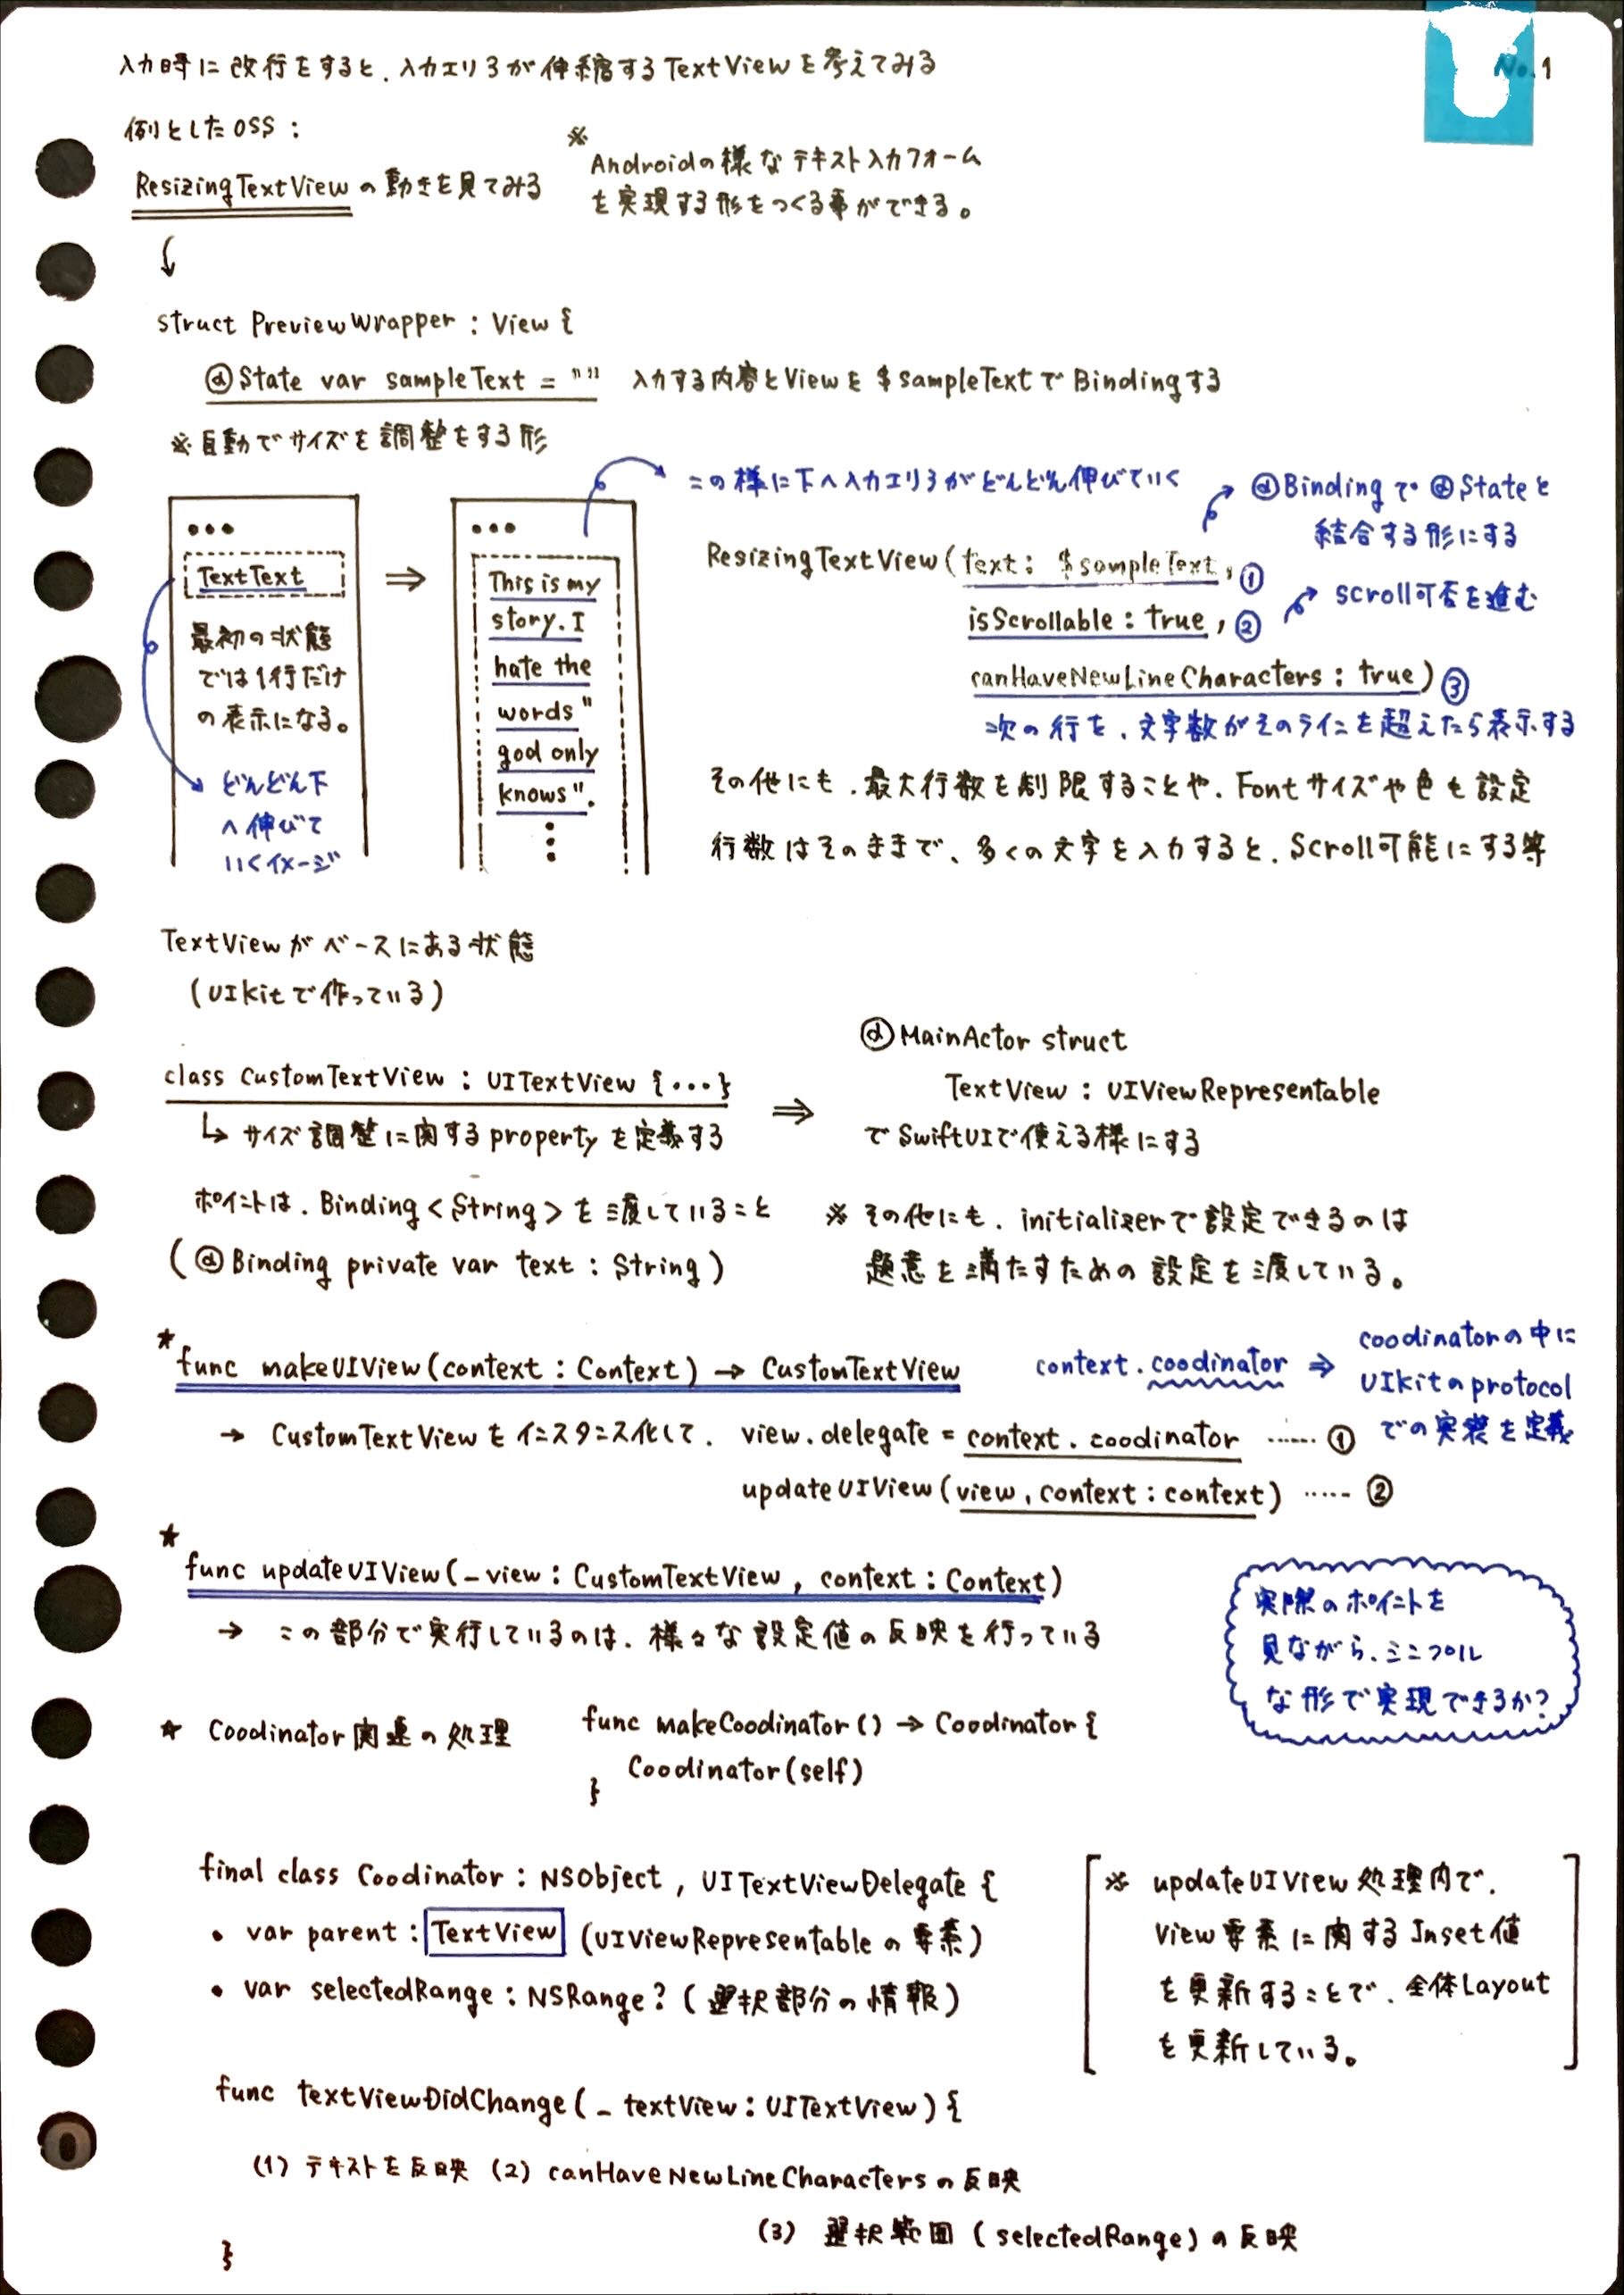 No.1
入力時に改行をすると、入力エリアが伸縮するTextViewを考えてみる
例としたOSS:
ResizingTextViewの動きを見てみる
※
Androidの様なテキスト入力フォーム
を実現する形をつくる事ができる。
struct PreviewWrapper : View {
@State var sampleText = "" 入力する内容とViewを$sampleTextでBindingする
※自動でサイズを調整をする形
TextText
最初の状態
では1行だけ
の表示になる。
どんどん下
へ伸びて
いくイメージ
⇒
This is my
story. I
hate the
words "
god only
knows".
この様に下へ入力エリアがどんどん伸びていく
@Bindingで@Stateと
結合する形にする
ResizingTextView(text: $sampleText, ①
isScrollable : true, ②
scroll可否を進む
canHaveNewLineCharacters : true) ③
次の行を、文字数がそのラインを超えたら表示する
その他にも、最大行数を制限することや、Fontサイズや色も設定
行数はそのままで、多くの文字を入力すると、Scroll可能にする等
TextViewがベースにある状態
(UIKitで作っている)
class CustomTextView : UITextView {...}
↳ サイズ調整に関するpropertyを定義する
⇒
@MainActor struct
TextView : UIViewRepresentable
でSwiftUIで使える様にする
ポイントは、Binding<String>を渡していること
(@Binding private var text : String)
※ その他にも、initializerで設定できるのは
題意を満たすための設定を渡している。
★func makeUIView(context : Context) → CustomTextView
context.coodinator ⇒ coodinatorの中に
UIKitのprotocol
での実装を定義
→ CustomTextViewをインスタンス化して、view.delegate = context.coodinator ...... ①
updateUIView(view, context : context) ..... ②
★
func updateUIView(_view : CustomTextView, context : Context)
→ この部分で実行しているのは、様々な設定値の反映を行っている
実際のポイントを
見ながら、ミニマル
な形で実現できるか?
★ Coodinator関連の処理
func makeCoodinator() → Coodinator {
Coodinator(self)
}
final class Coodinator : NSObject, UITextViewDelegate {
• var parent : TextView (UIViewRepresentableの要素)
• var selectedRange : NSRange? (選択部分の情報)
※ updateUIView処理内で、
View要素に関するInset値
を更新することで、全体Layout
を更新している。
func textViewDidChange(_ textView : UITextView) {
(1) テキストを反映 (2) canHaveNewLineCharactersの反映
(3) 選択範囲 (selectedRange)の反映
}